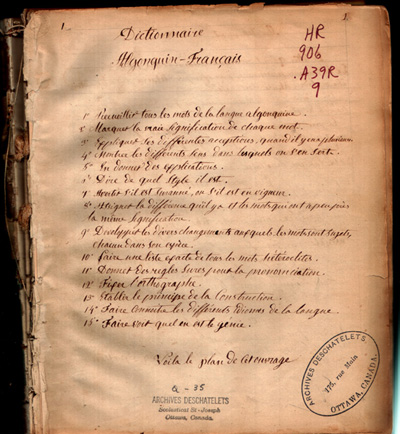 1.
1.
Dictionnaire
Algonquin-Français
HR
906
.A39R
9
1° Recueillir tous les mots de la langue algonquine.
2° Marquer la vraie signification de chaque mot.
3° Expliquer ses différentes acceptions, quand il y en a plusieurs.
4° Montrer les différents sens dans lesquels on s'en sert.
5° En donner des applications.
6° Dire de quel style il est.
7° Montrer s'il est suranné, ou s'il est en vigueur.
8° Assigner la différence qu'il y a et les mots qui ont à peu près
la même signification.
9° Développer les divers changements auxquels les mots sont sujets,
chacun dans son espèce.
10° faire une liste exacte de tous les mots hétéroclites.
11° Donner des règles sures pour la prononciation.
12° Fixer l'orthographe.
13° Etablir le principe de la Construction.
14° Faire connaitre les différents idiomes de la langue.
15° Faire voir quel en est le génie.
Voilà le plan de cet ouvrage
Q - 35
ARCHIVES DESCHATELETS
Scolasticat St-Joseph
Ottawa, Canada.
ARCHIVES DESCHATELETS
175, rue Main
OTTAWA, CANADA.